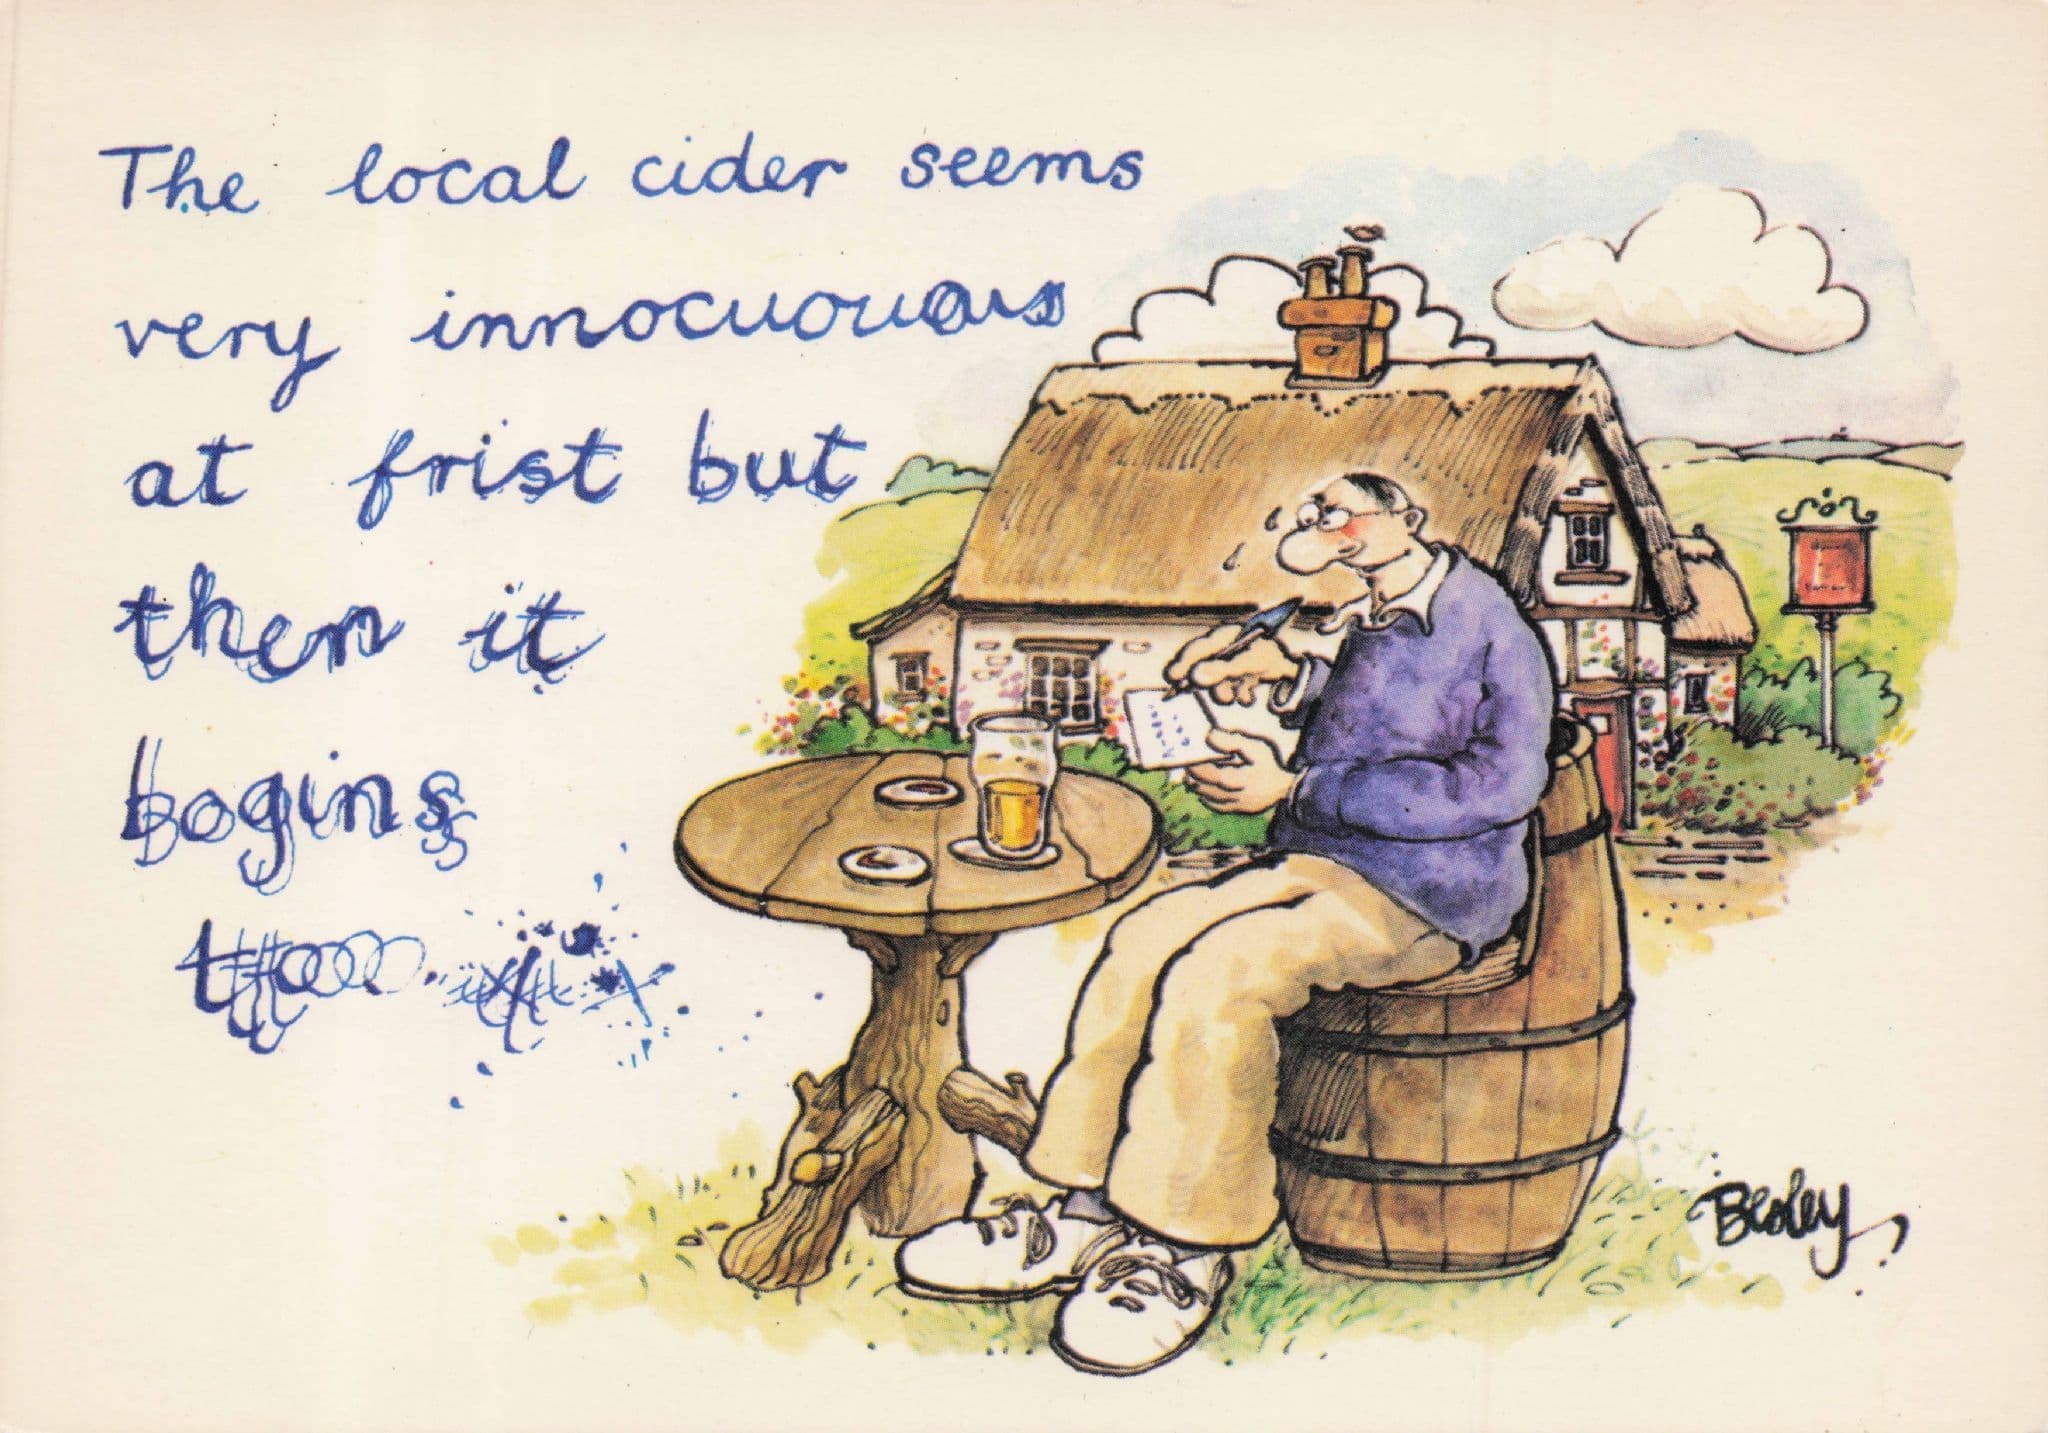 The local cider seems
very innocuouous
at frist but
then it
bogins
to
Besley